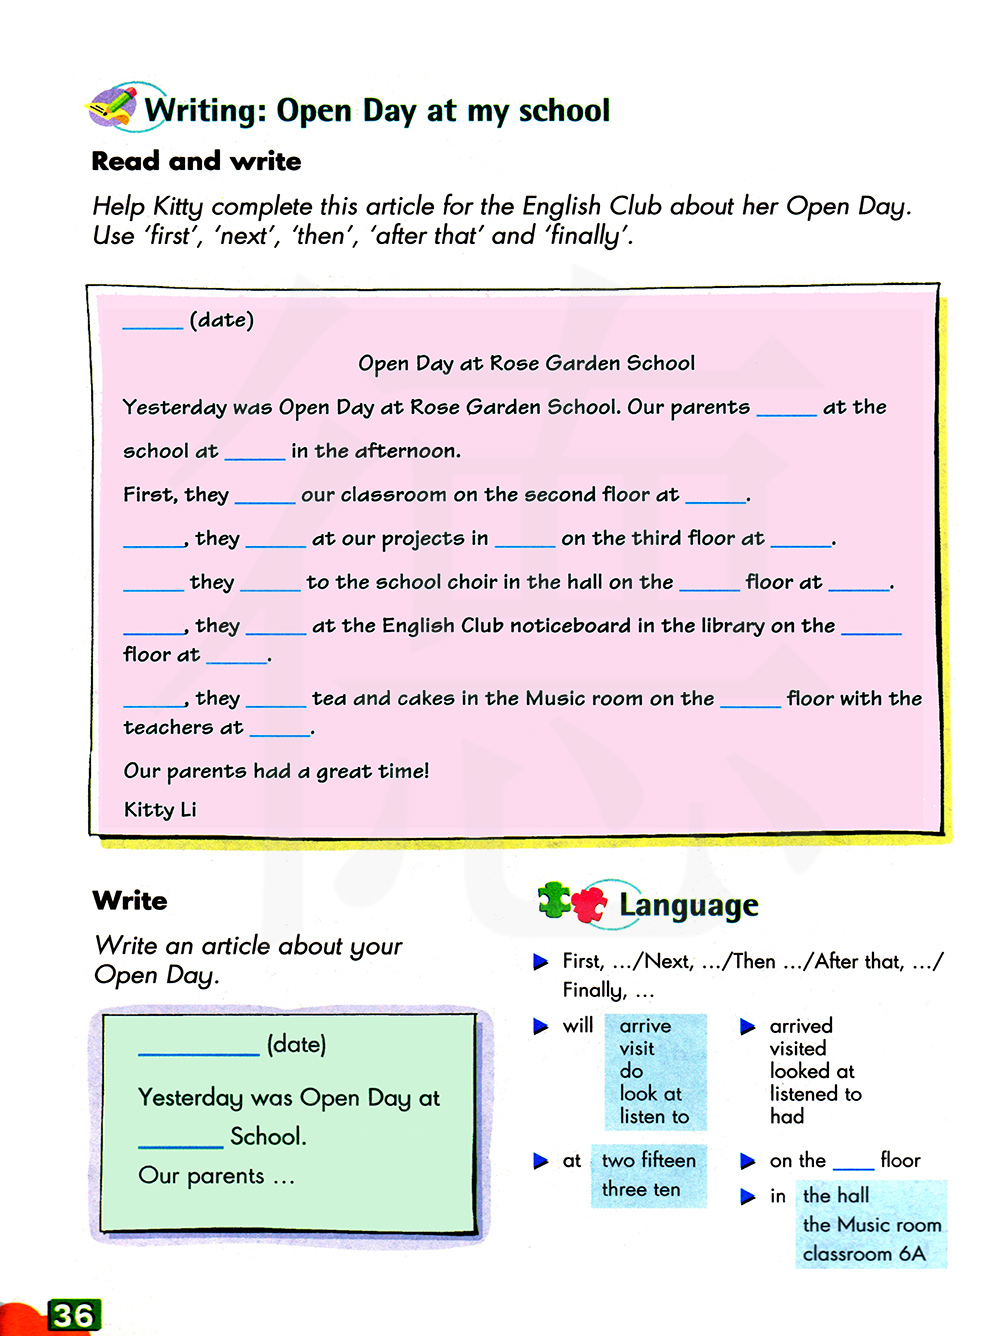 Writing: Open Day at my school
Read and write
Help Kitty complete this article for the English Club about her Open Day.
Use ‘first’, ‘next’, ‘then’, ‘after that’ and ‘finally’.
______ (date)
Open Day at Rose Garden School
Yesterday was Open Day at Rose Garden School. Our parents ______ at the
school at ______ in the afternoon.
First, they ______ our classroom on the second floor at ______.
______, they ______ at our projects in ______ on the third floor at ______.
______ they ______ to the school choir in the hall on the ______ floor at ______.
______, they ______ at the English Club noticeboard in the library on the ______
floor at ______.
______, they ______ tea and cakes in the Music room on the ______ floor with the
teachers at ______.
Our parents had a great time!
Kitty Li
Write
Write an article about your
Open Day.
__________ (date)
Yesterday was Open Day at
_______ School.
Our parents ...
Language
First, .../Next, .../Then .../After that, .../
Finally, ...
will arrive
visit
do
look at
listen to
arrived
visited
looked at
listened to
had
at two fifteen
three ten
on the ____ floor
in the hall
the Music room
classroom 6A
36